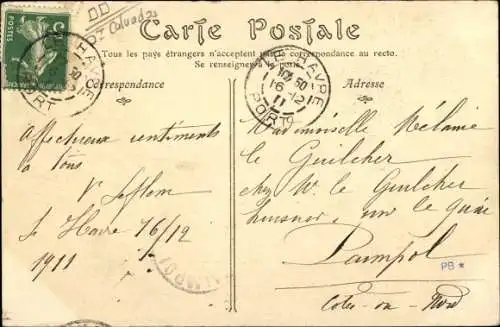 14 Calvados
Carte Postale
Tous les pays étrangers n'acceptent pas la correspondance au recto.
Se renseigner à la poste
Correspondance
Adresse
5
POSTES
LE HAVRE
PORT
LE HAVRE
16-12
11
PORT
Affectueux sentiments
à tous
Le Havre 16/12
1911
Mademoiselle Mélanie
le Guilcher
chez Mr le Guilcher
sur le quai
Paimpol
PB *
Côtes-du-Nord
PAIMPOL